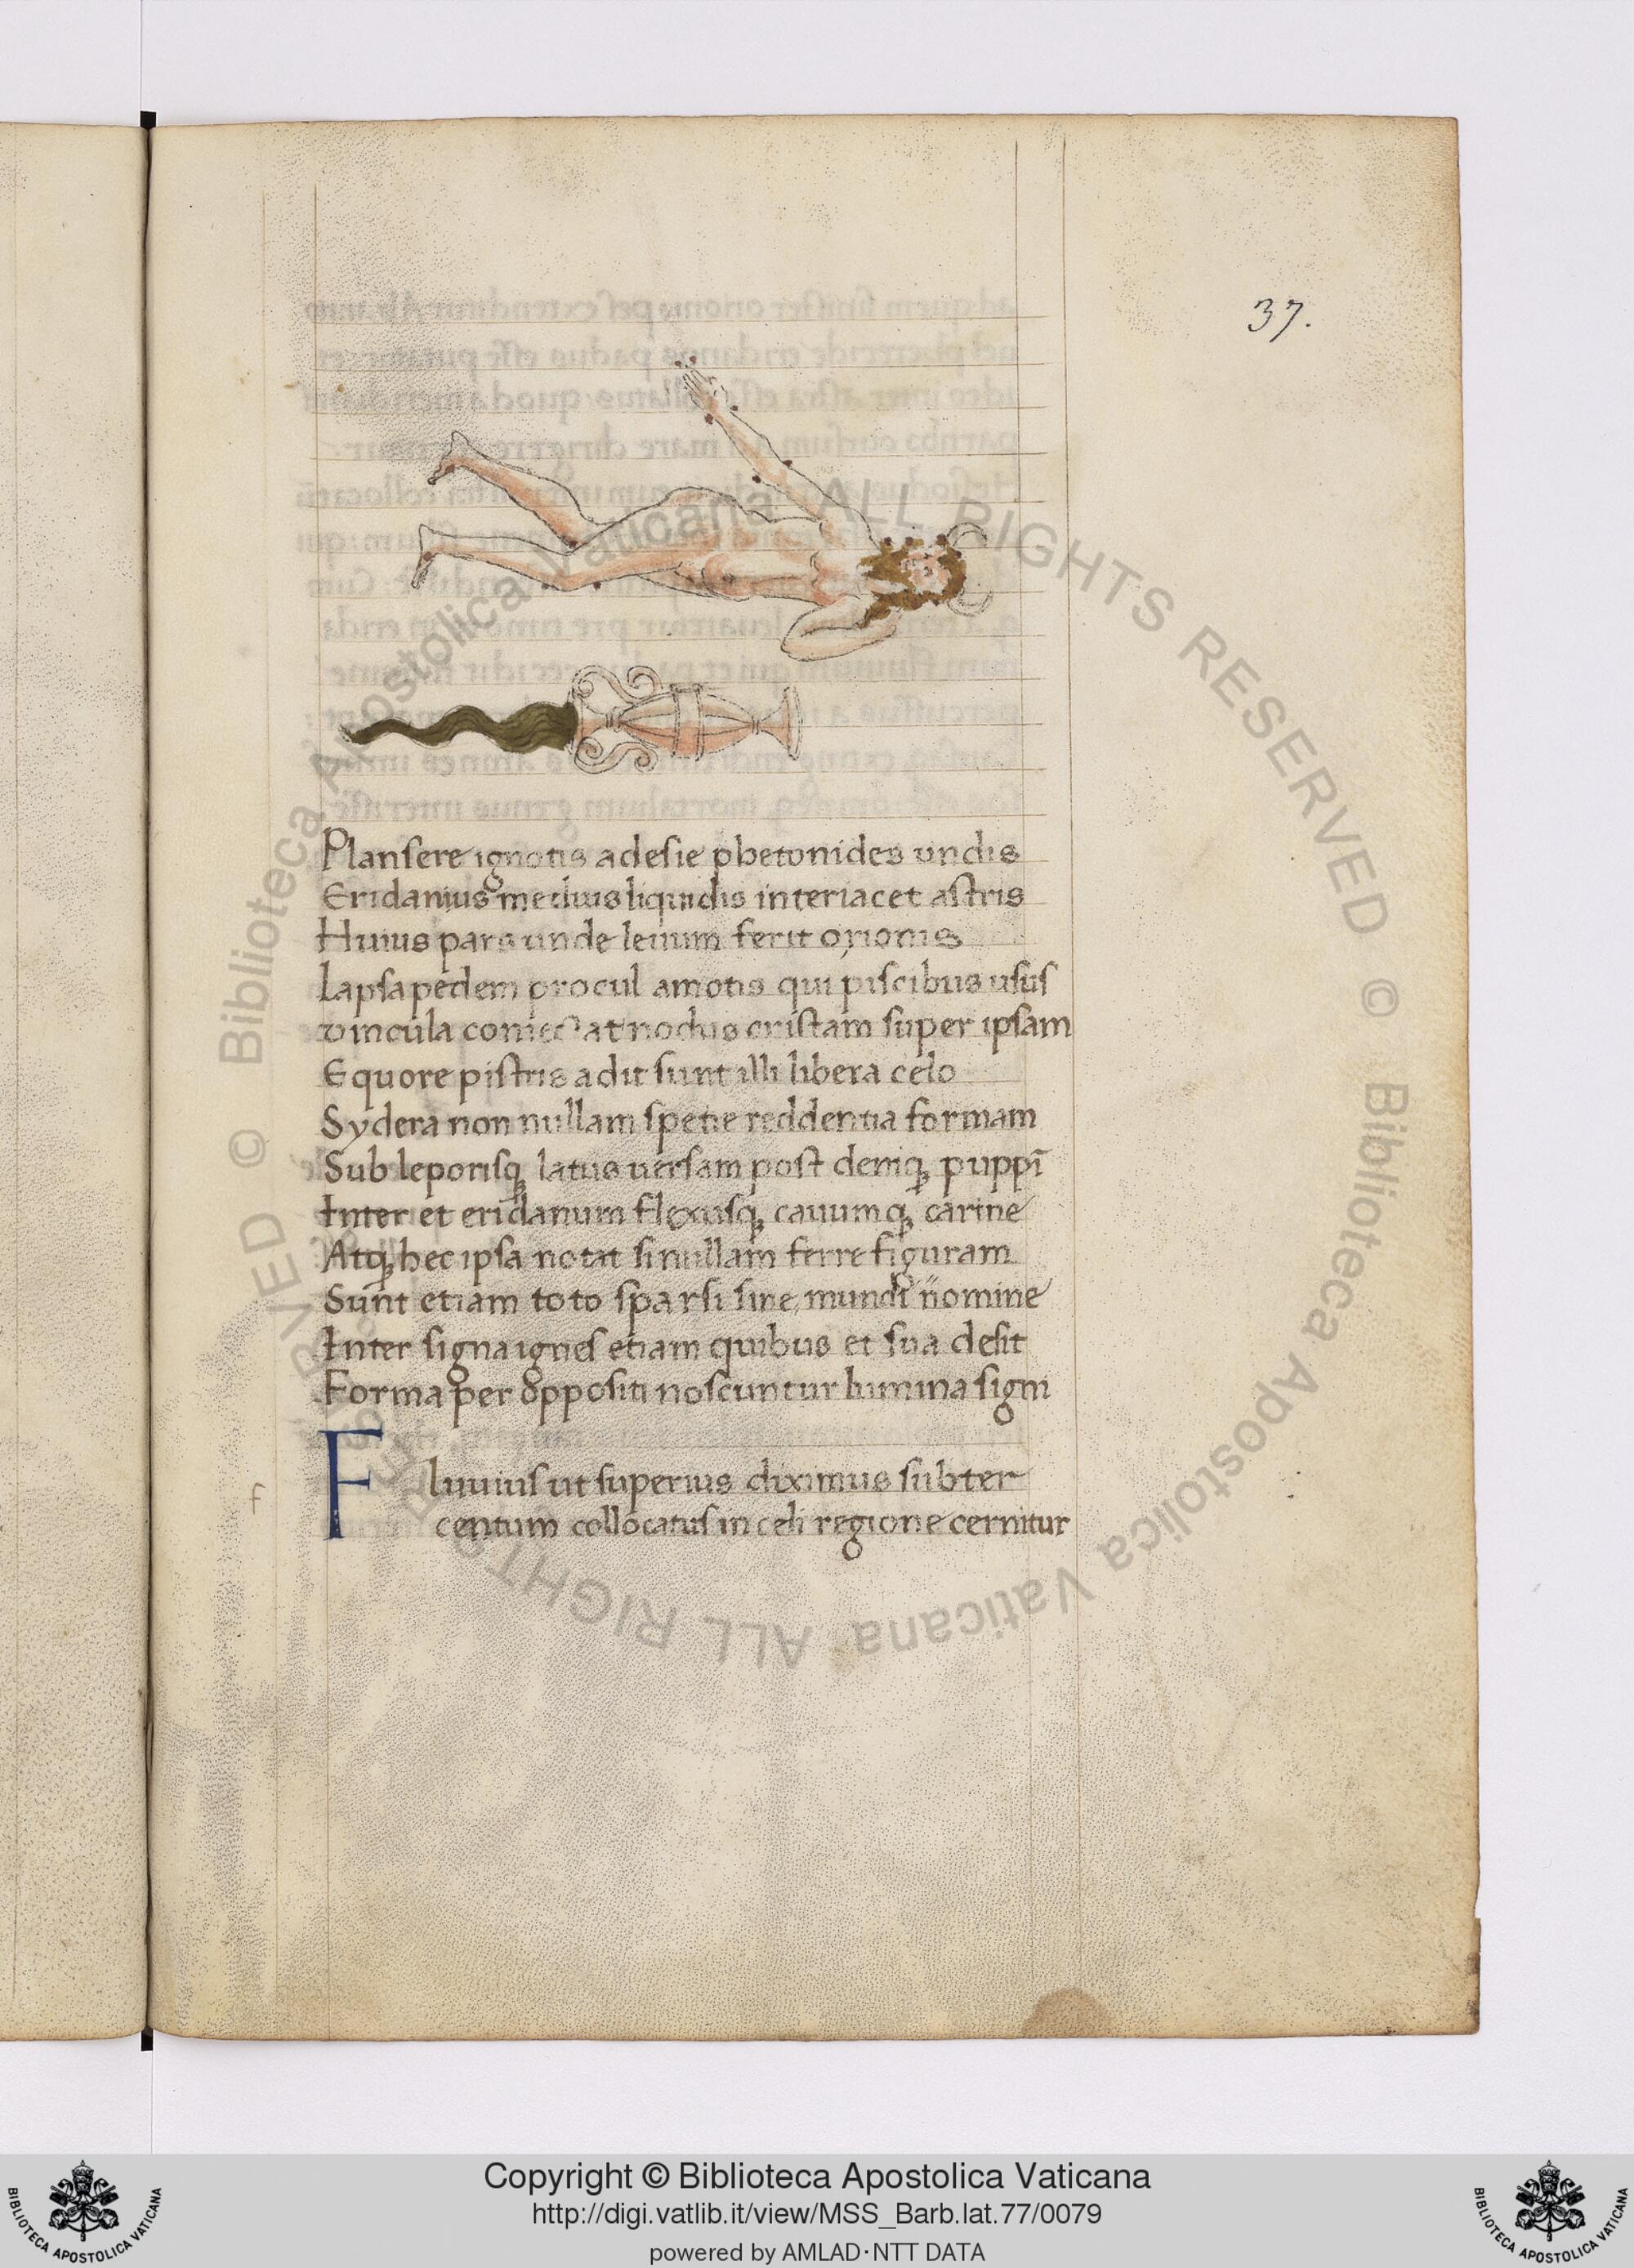 37.
Plansere ignotis adesie phetonides undis
Eridanius medius liquidis interiacet astris
Huius pars unde leuum ferit orionis
Lapsa pedem procul amotis qui piscibus usus
vincula coniectat nodus cristam super ipsam
Equore pistris adit sunt illi libera celo
Sydera non nullam spetie reddentia formam
Sub leporisq; latus uersam post deniq; puppī
Inter et eridanum flexusq; cauumq; carine
Atq; hec ipsa notat si nullam ferre figuram
Sunt etiam toto sparsi sine mundi nomine
Inter signa ignes etiam quibus et sua desit
Forma per oppositi noscuntur lumina signi
f
Fluuius ut superius diximus subter
centum collocatus in celi regione cernitur
© Biblioteca Apostolica Vaticana ALL RIGHTS RESERVED © Biblioteca Apostolica Vaticana ALL RIGHTS RESERVED
Copyright © Biblioteca Apostolica Vaticana
http://digi.vatlib.it/view/MSS_Barb.lat.77/0079
powered by AMLAD·NTT DATA
BIBLIOTECA APOSTOLICA VATICANA
BIBLIOTECA APOSTOLICA VATICANA